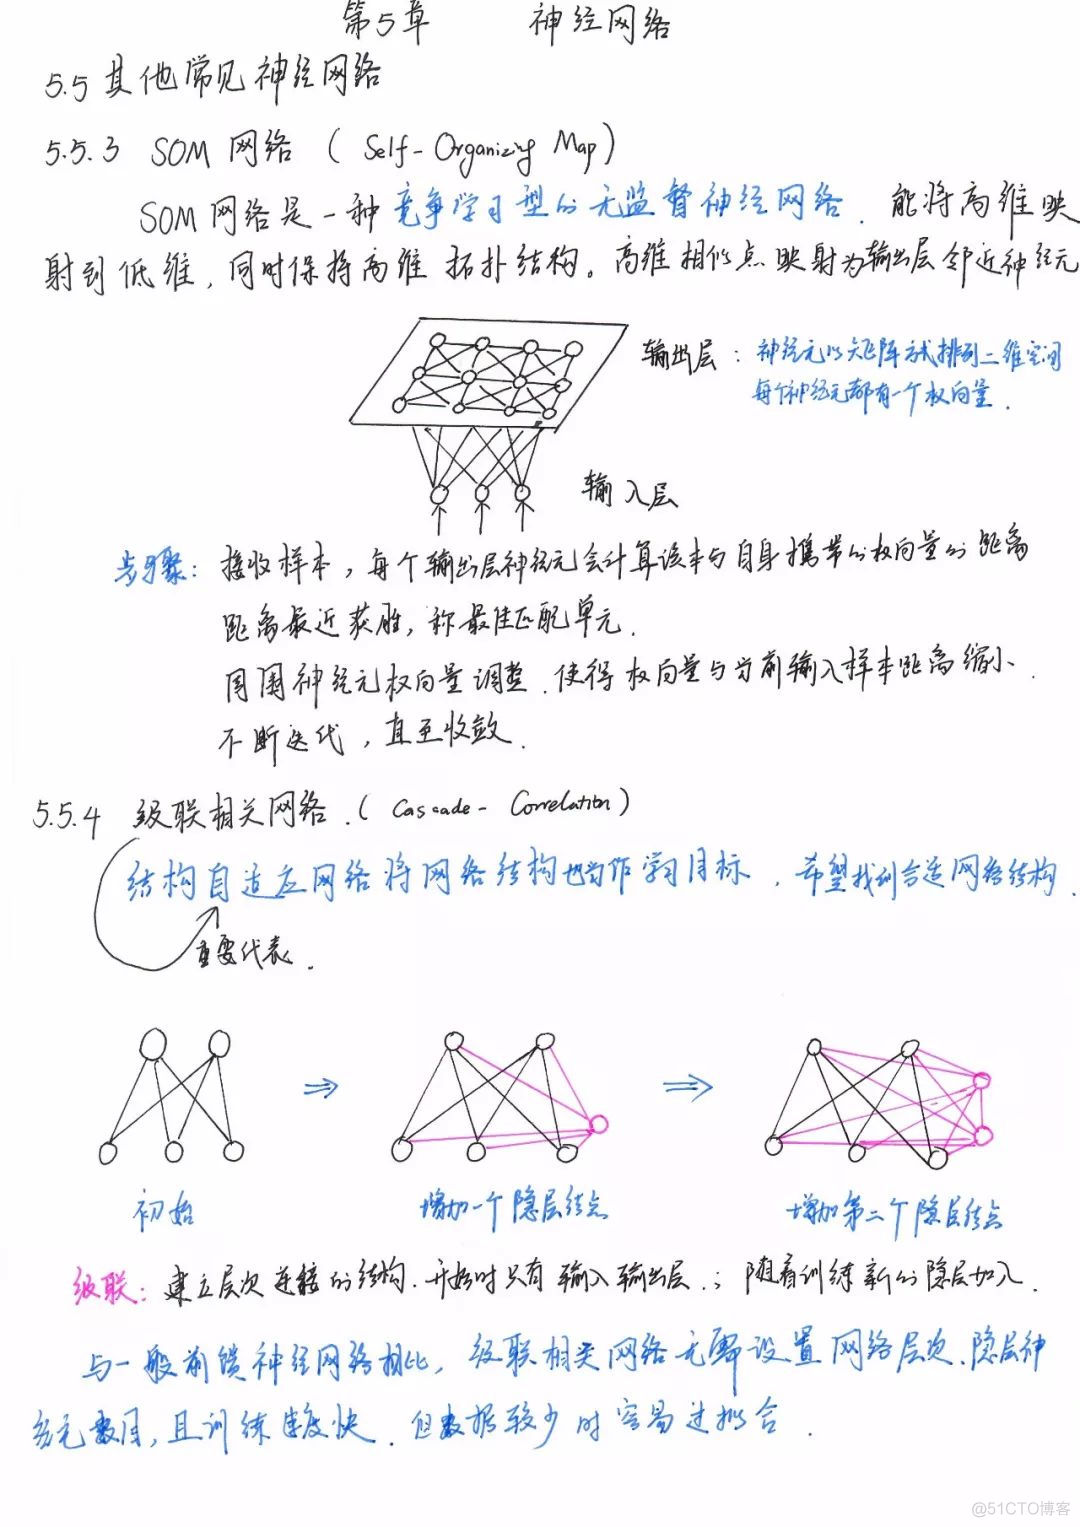 第5章 神经网络
5.5 其他常见神经网络
5.5.3 SOM 网络 ( Self-Organizing Map)
SOM 网络是一种竞争学习型的无监督神经网络. 能将高维映
射到低维, 同时保持高维拓扑结构。高维相似点映射为输出层邻近神经元
输出层: 神经元以矩阵方式排列二维空间
每个神经元都有一个权向量.
输入层
步骤: 接收样本, 每个输出层神经元会计算该本与自身携带的权向量的距离
距离最近获胜, 称最佳匹配单元.
周围神经元权向量调整. 使得权向量与当前输入样本距离缩小.
不断迭代, 直至收敛.
5.5.4 级联相关网络. ( Cascade-Correlation)
结构自适应网络将网络结构也当作学习目标, 希望找到合适网络结构.
重要代表.
初始
增加一个隐层结点
增加第二个隐层结点
级联: 建立层次连接的结构. 开始时只有输入输出层.; 随着训练新的隐层加入.
与一般前馈神经网络相比, 级联相关网络无需设置网络层次、隐层神
经元数目, 且训练速度快. 但数据较少时容易过拟合.
@51CTO博客